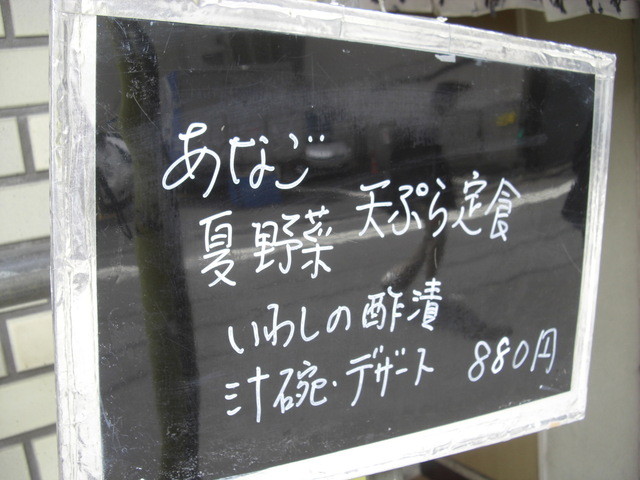 あなご
夏野菜 天ぷら定食
いわしの酢漬
汁碗・デザート 880円